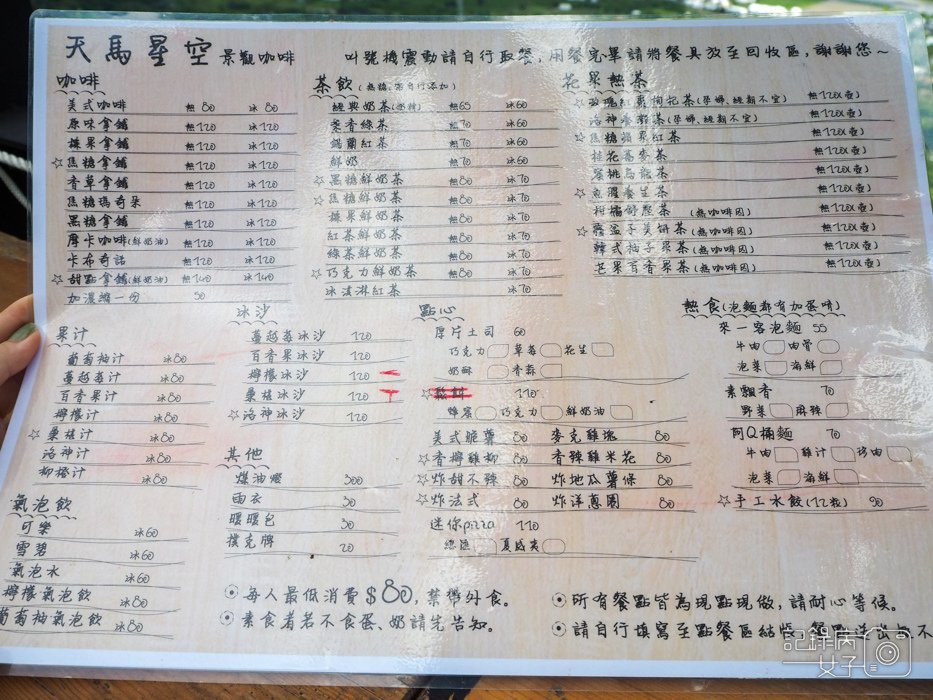 天馬星空 景觀咖啡
叫號機震動請自行取餐,用餐完畢請將餐具放至回收區,謝謝您~
咖啡
美式咖啡 熱80 冰80
原味拿鐵 熱120 冰120
榛果拿鐵 熱120 冰120
☆焦糖拿鐵 熱120 冰120
香草拿鐵 熱120 冰120
焦糖瑪奇朵 熱120 冰120
黑糖拿鐵 熱120 冰120
摩卡咖啡(鮮奶油) 熱120 冰120
卡布奇諾 熱120 冰120
☆甜點拿鐵(鮮奶油) 熱140 冰140
加濃縮一份 50
茶飲(無糖,需自行添加)
經典奶茶(奶精) 熱65 冰60
茉香綠茶 熱70 冰60
錫蘭紅茶 熱70 冰60
鮮奶 熱70 冰60
☆黑糖鮮奶茶 熱80 冰70
☆焦糖鮮奶茶 熱80 冰70
榛果鮮奶茶 熱80 冰70
紅茶鮮奶茶 熱80 冰70
綠茶鮮奶茶 熱80 冰70
☆巧克力鮮奶茶 熱80 冰70
冰淇淋紅茶 冰70
花果熱茶
☆玫瑰紅棗枸杞茶(孕婦,經期不宜) 熱120(壺)
洛神養顏茶(孕婦,經期不宜) 熱120(壺)
☆焦糖蘋果紅茶 熱120(壺)
桂花蕎麥茶 熱120(壺)
蜜桃烏龍茶 熱120(壺)
☆魚腥養生茶 熱120(壺)
柑橘舒壓茶 (無咖啡因) 熱120(壺)
☆養益子美妍茶 (無咖啡因) 熱120(壺)
韓式柚子果茶 (無咖啡因) 熱120(壺)
芒果百香果茶 (無咖啡因) 熱120(壺)
果汁
葡萄柚汁 冰80
蔓越莓汁 冰80
百香果汁 冰80
檸檬汁 冰80
☆桑椹汁 冰80
洛神汁 冰80
柳橙汁 冰80
氣泡飲
可樂 冰60
雪碧 冰60
氣泡水 冰60
檸檬氣泡飲 冰80
葡萄柚氣泡飲 冰80
冰沙
蔓越莓冰沙 120
百香果冰沙 120
檸檬冰沙 120
桑椹冰沙 120
☆洛神冰沙 120
其他
煤油燈 300
雨衣 30
暖暖包 30
撲克牌 20
點心
厚片土司 60
巧克力 草莓 花生
奶酥 香蒜
☆鬆餅 110
蜂蜜 巧克力 鮮奶油
美式脆薯 80 麥克雞塊 80
☆香檸雞柳 80 香辣雞米花 80
☆炸甜不辣 80 炸地瓜薯條 80
☆炸法式 80 炸洋蔥圈 80
迷你pizza 110
總匯 夏威夷
熱食(泡麵都有加蛋唷)
來一客泡麵 55
牛肉 肉骨
泡菜 海鮮
素飄香 70
野菜 麻辣
阿Q桶麵 70
牛肉 雞汁 珍肉
泡菜 海鮮
☆手工水餃(12粒) 90
⊙每人最低消費$80,禁帶外食。
⊙素食者若不食蛋、奶請先告知。
⊙所有餐點皆為現點現做,請耐心等候。
⊙請自行填寫至點餐區結帳,餐點送出
記錄病女子